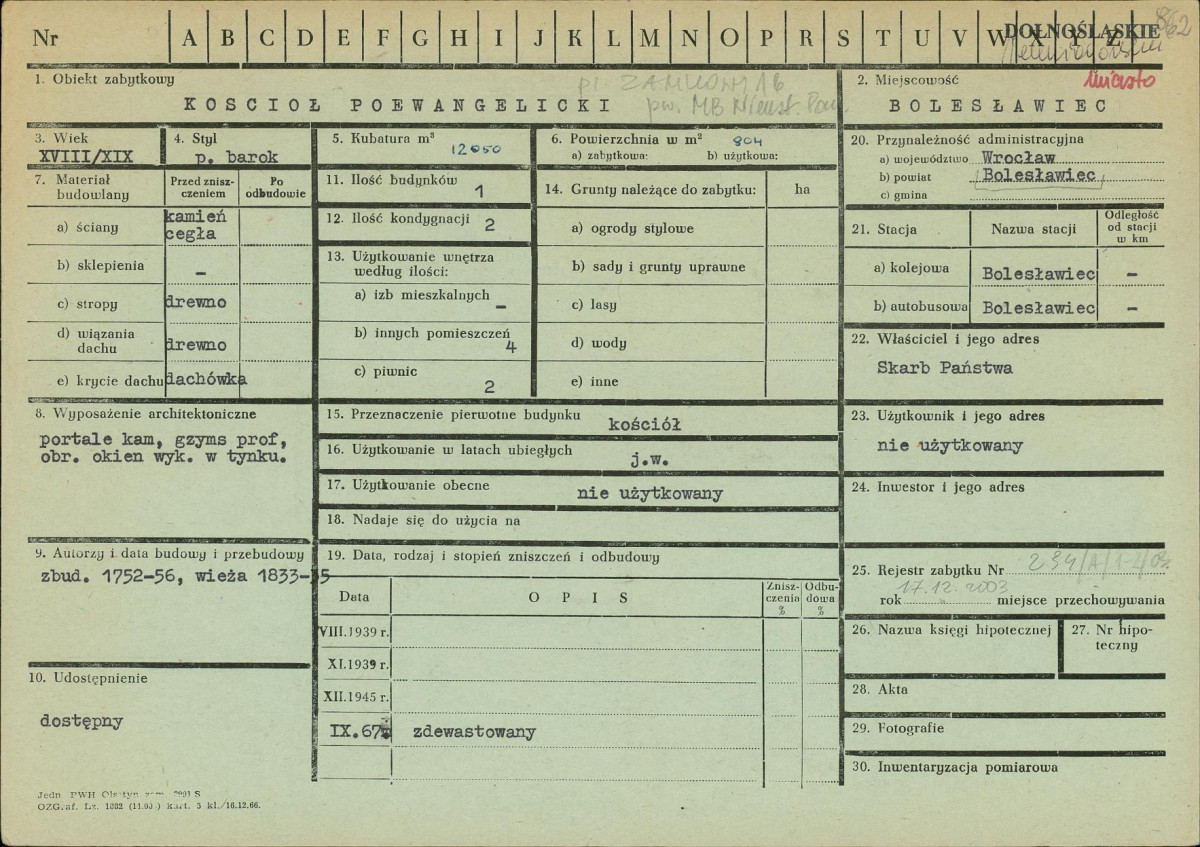 Nr A B C D E F G H I J K L M N O P R S T U V W X Y Z
DOLNOŚLĄSKIE
862
1. Obiekt zabytkowy
pl ZAMKOWY 1B
KOSCIOŁ POEWANGELICKI
pw. MB Nieust. Pom.
2. Miejscowość
miasto
BOLESŁAWIEC
3. Wiek
XVIII/XIX
4. Styl
p. barok
5. Kubatura m³
12050
6. Powierzchnia w m² 804
a) zabytkowa: b) użytkowa:
7. Materiał budowlany
Przed znisz-
czeniem
Po
odbudowie
a) ściany
kamień
cegła
b) sklepienia –
c) stropy drewno
d) wiązania
dachu
drewno
e) krycie dachu dachówka
8. Wyposażenie architektoniczne
portale kam, gzyms prof,
obr. okien wyk. w tynku.
9. Autorzy i data budowy i przebudowy
zbud. 1752-56, wieża 1833-35
10. Udostępnienie
dostępny
11. Ilość budynków 1
12. Ilość kondygnacji 2
13. Użytkowanie wnętrza
według ilości:
a) izb mieszkalnych –
b) innych pomieszczeń 4
c) piwnic 2
14. Grunty należące do zabytku: ha
a) ogrody stylowe
b) sady i grunty uprawne
c) lasy
d) wody
e) inne
15. Przeznaczenie pierwotne budynku kościół
16. Użytkowanie w latach ubiegłych j.w.
17. Użytkowanie obecne nie użytkowany
18. Nadaje się do użycia na
19. Data, rodzaj i stopień zniszczeń i odbudowy
Data
O P I S
Znisz-
czenia
%
Odbu-
dowa
%
VIII.1939 r.
XI.1939 r.
XII.1945 r.
IX.67 zdewastowany
20. Przynależność administracyjna
a) województwo Wrocław
b) powiat Bolesławiec
c) gmina
21. Stacja
Nazwa stacji
Odległość
od stacji
w km
a) kolejowa Bolesławiec –
b) autobusowa Bolesławiec –
22. Właściciel i jego adres
Skarb Państwa
23. Użytkownik i jego adres
nie użytkowany
24. Inwestor i jego adres
25. Rejestr zabytku Nr
17.12.2003
rok miejsce przechowywania
26. Nazwa księgi hipotecznej
27. Nr hipo-
teczny
28. Akta
29. Fotografie
30. Inwentaryzacja pomiarowa
Jedn PWH Olsztyn zam.
OZG. af. Lz. 1882 kart. 5 kl./16.12.66.